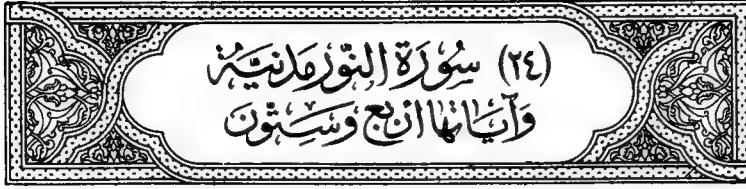 (٢٤) سُورَةُ النُّورِ مَدَنِيَّة
وَآيَاتُهَا أَرْبَع وَسِتُّونَ